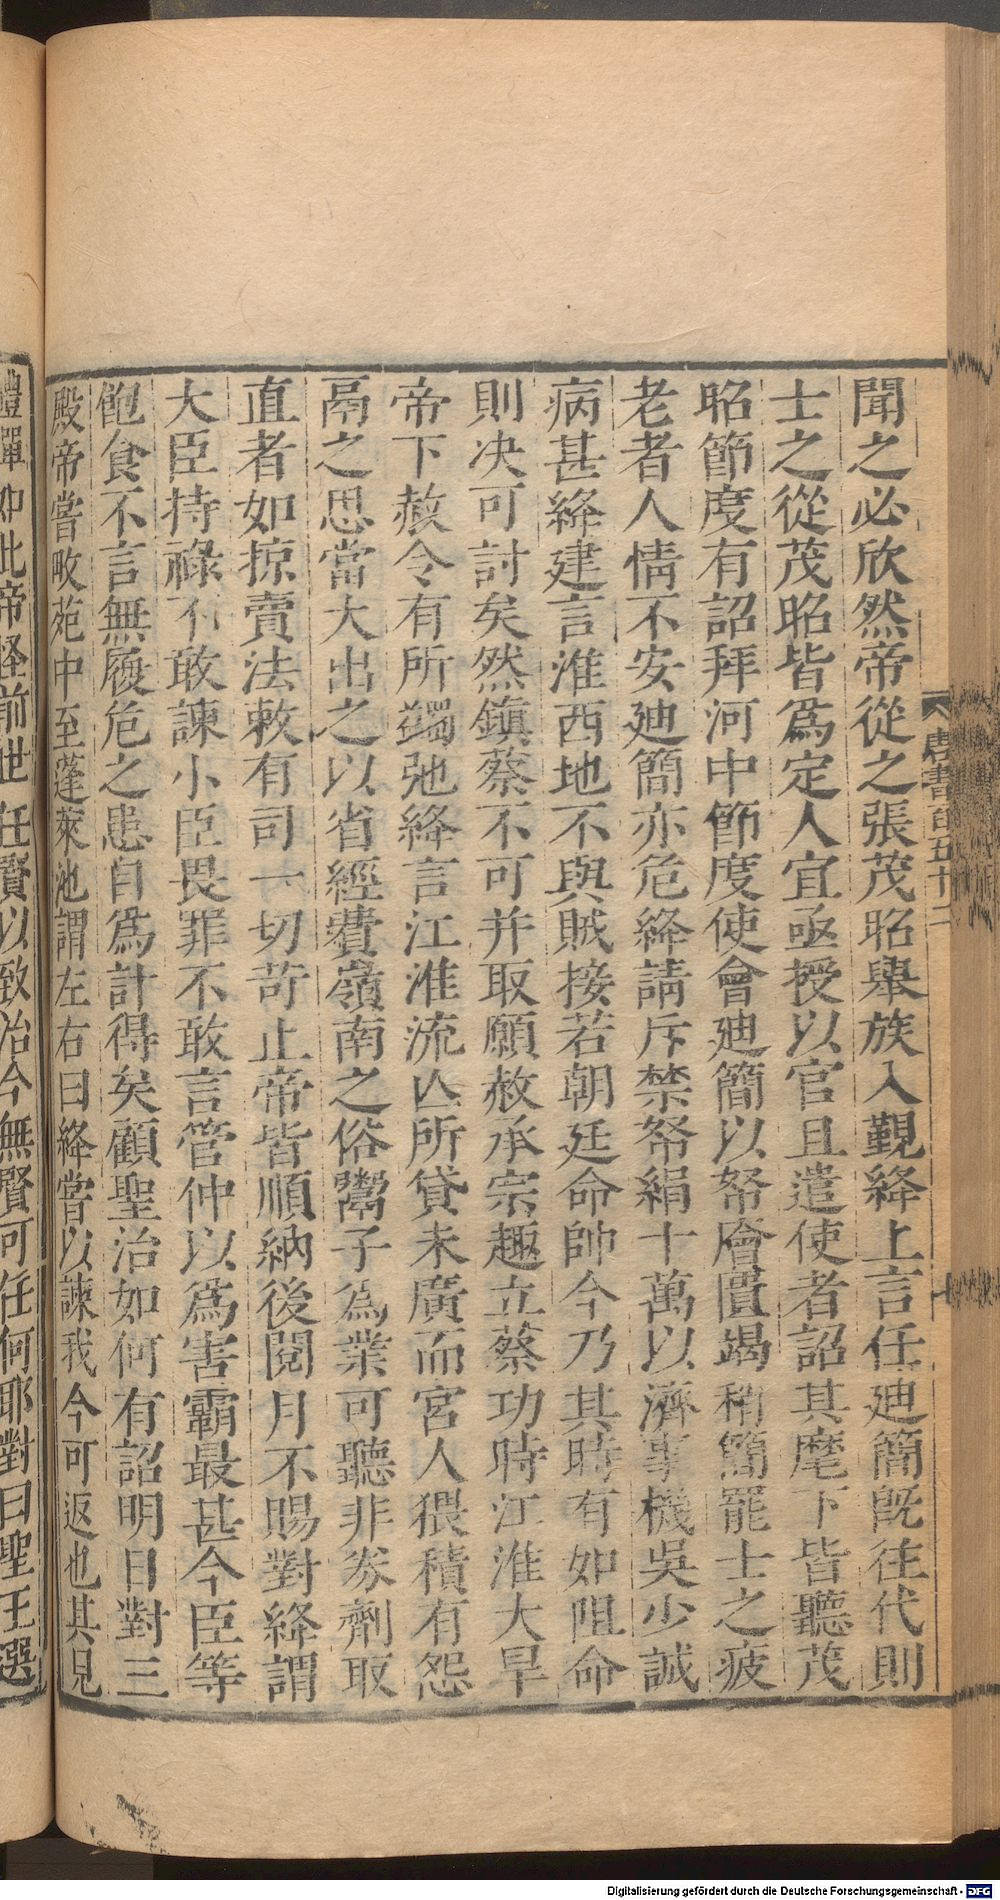 聞之必欣然帝從之張茂昭舉族入覲絳上言任廸簡旣往代則
士之從茂昭皆爲定人宜亟授以官且遣使者詔其麾下皆聽茂
昭節度有詔拜河中節度使會廸簡以帑廥匱竭稍簡罷士之疲
老者人情不安廸簡亦危絳請斥禁帑絹十萬以濟事機吳少誠
病甚絳建言淮西地不與賊接若朝廷命帥今乃其時有如阻命
則决可討矣然鎮蔡不可并取願赦承宗趣立蔡功時江淮大旱
帝下赦令有所蠲弛絳言江淮流亾所貸未廣而宮人猥積有怨
鬲之思當大出之以省經費嶺南之俗鬻子爲業可聽非劵劑取
直者如掠賣法敕有司一切苛止帝皆順納後閱月不賜對絳謂
大臣持祿不敢諫小臣畏罪不敢言管仲以爲害霸最甚今臣等
飽食不言無履危之患自爲計得矣顧聖治如何有詔明日對三
殿帝嘗畋苑中至蓬萊池謂左右曰絳嘗以諫我今可返也其見
禮憚如此帝怪前世任賢以致治今無賢可任何耶對曰聖王選
唐書百五十二
Digitalisierung gefördert durch die Deutsche Forschungsgemeinschaft - DFG